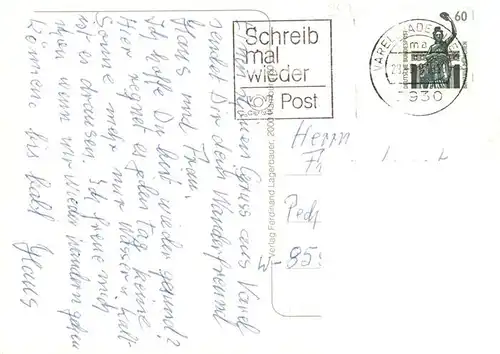 Schreib
mal
wieder
Post
60
DEUTSCHE BUNDESPOST
VAREL, JADE
ma
2930
Einen kleinen Gruss aus Varel
sendet Dir dein Wanderfreund
Hans und Frau.
Ich hoffe Du bist wieder gesund?
Hier regnet es jeden tag keine
Sonne mehr nur Wasser u. kalt
ist es draussen. Ich freue mich
schon wenn wir wieder wandern gehen
können. bis bald
Hans
Verlag Ferdinand Lagerbauer, 2000 Hamburg
Herrn
W-859